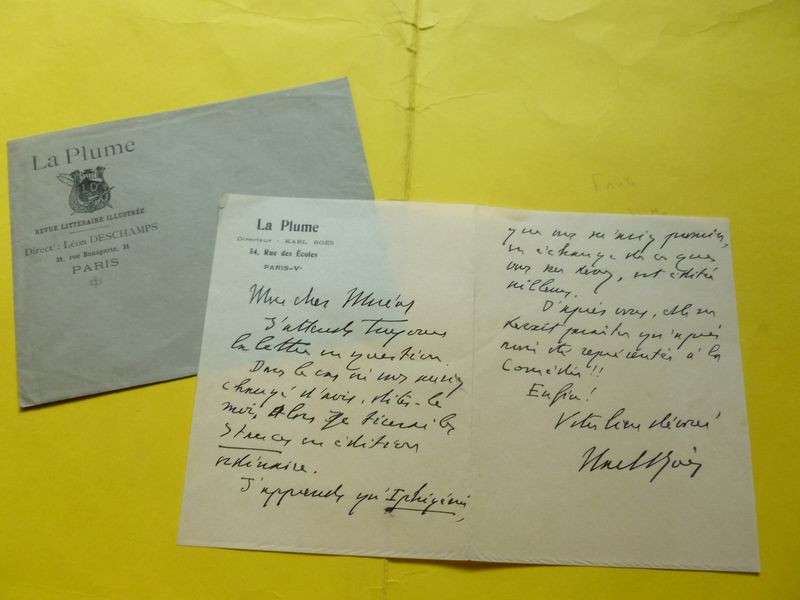 La Plume
REVUE LITTÉRAIRE ILLUSTRÉE
Directr : Léon DESCHAMPS
31, rue Bonaparte, 31
PARIS
La Plume
Directeur : KARL BOÈS
54, Rue des Écoles
PARIS-Ve
Mon cher Moréas
J'attends toujours
la lettre en question.
Dans le cas où vous auriez
changé d'avis, dites-le
moi. Alors je tirerai les
Stances en édition
ordinaire.
J'apprends qu'Iphigénie,
que vous m'aviez promise,
en échange de ce que
vous me devez, est éditée
ailleurs.
D'après vous, elle ne
devait paraître qu'après
avoir été représentée à la
Comédie!!
Enfin!
Votre bien dévoué
Karl Boès